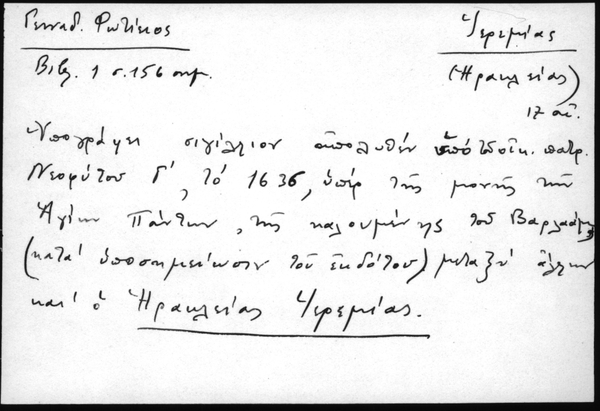 Γενναδ. Φωτίειος
Ἱερεμίας
Βιβλ. 1 σ. 156 σημ.
(Ἡρακλείας)
17 αἰ.
Ὑπογράφει σιγίλλιον ἀπολυθέν ὑπό τοῦ οἰκ. πατρ.
Νεοφύτου Γ´, τό 1636, ὑπέρ τῆς μονῆς τῶν
Ἁγίων Πάντων, τῆς καλουμένης τοῦ Βαρλαάμ,
(κατά ὑποσημείωσιν τοῦ ἐκδότου) μεταξύ ἄλλων
και ὁ Ἡρακλείας Ἱερεμίας.